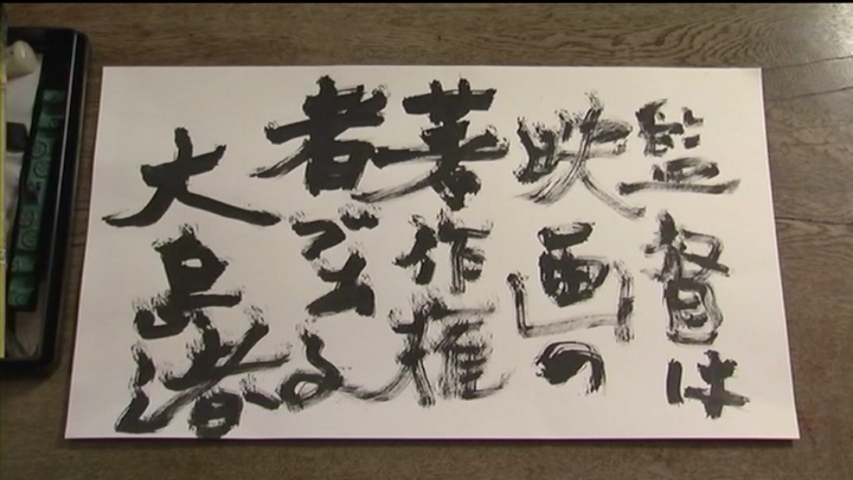 監督は
映画の
著作権
者である
大島渚